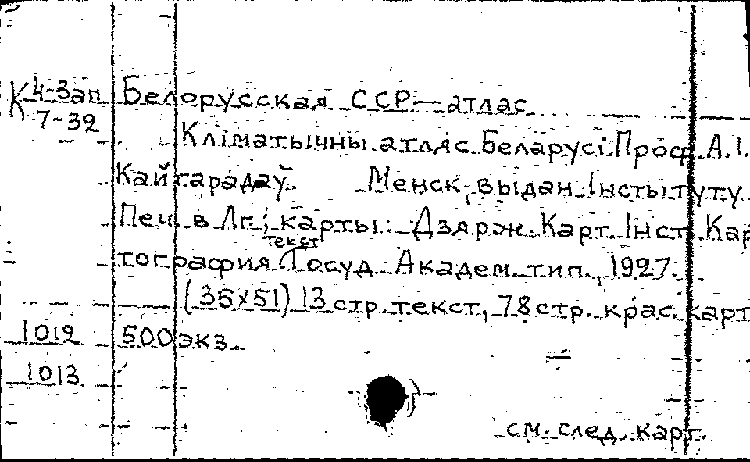 К 4-Зап Белорусская ССР — атлас
7-39
Кліматычны атлас Беларусі Проф А.І.
Кайгарадаў. Менск, выдан Інстытуту
Печ в Лг; карты: Дзярж. Карт. Інст. Кар
текст
тография Госуд. Академ. тип., 1927.
(35х51) 13 стр. текст, 78 стр. крас. карт
1012 500 экз.
1013
см. след. карт.